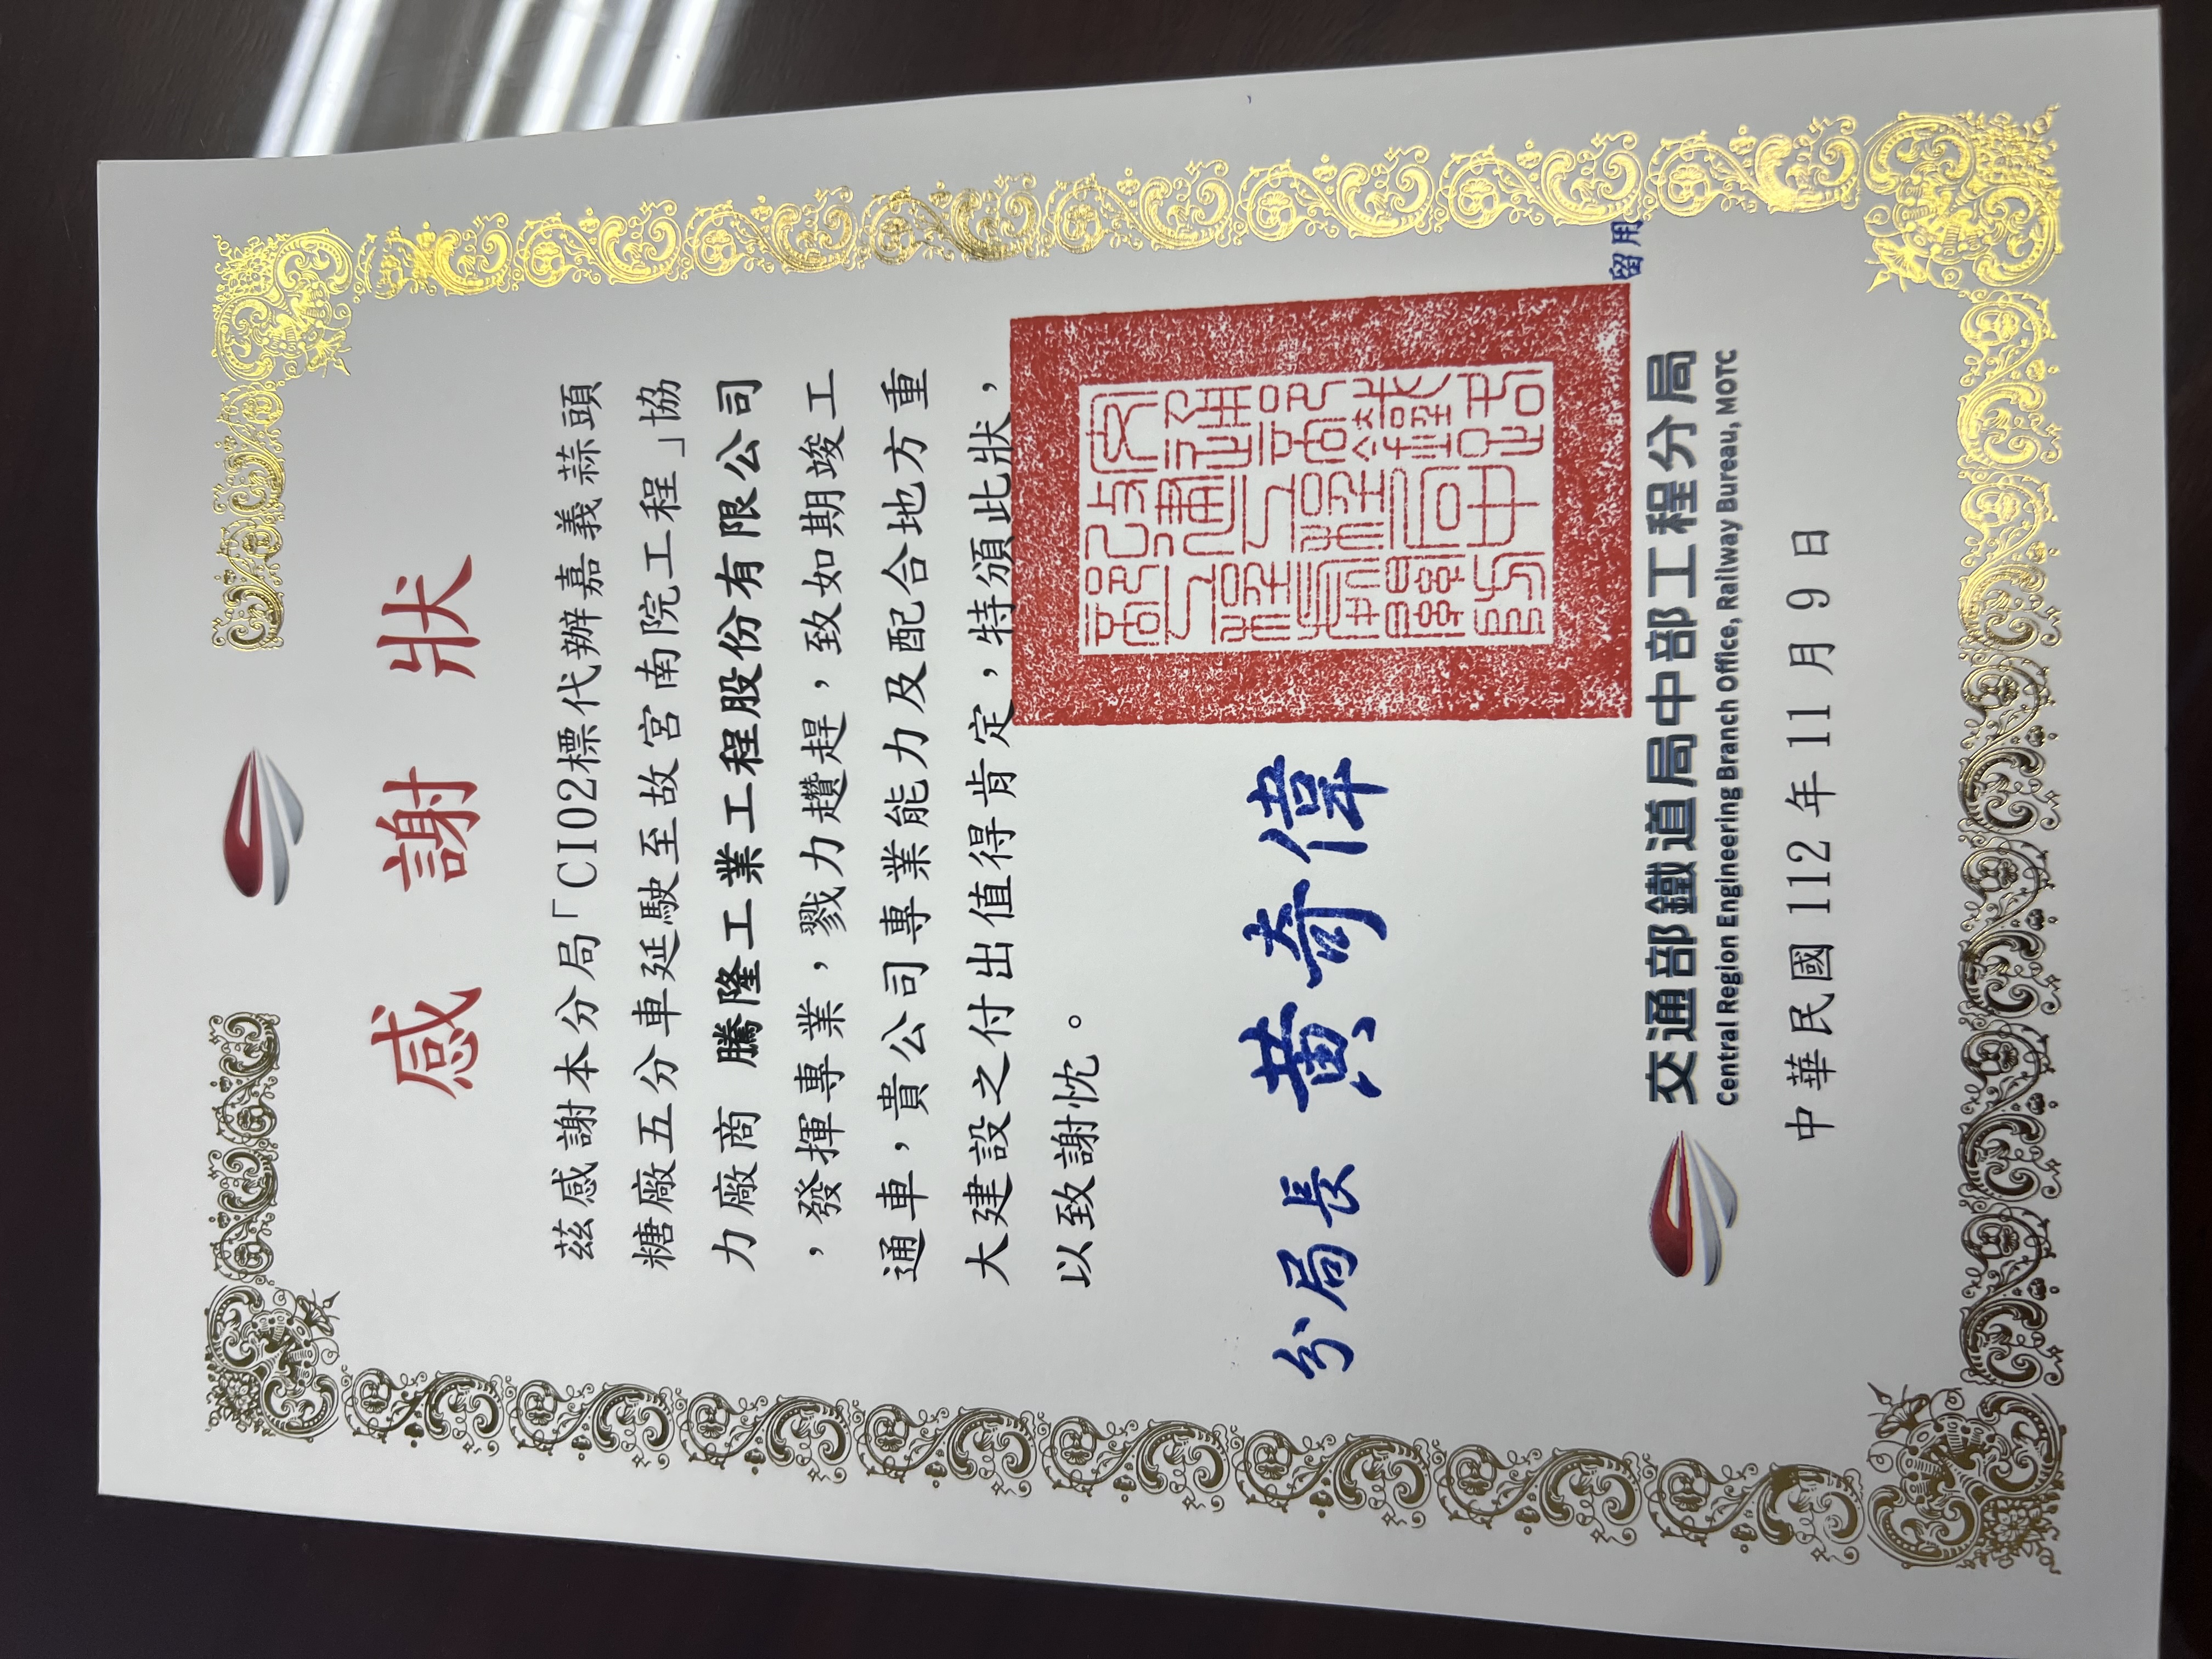 感謝狀
茲感謝本分局「CI02標代辦嘉義蒜頭
糖廠五分車延駛至故宮南院工程」協
力廠商 騰隆工業工程股份有限公司
，發揮專業，戮力趲趕，致如期竣工
通車，貴公司專業能力及配合地方重
大建設之付出值得肯定，特頒此狀，
以致謝忱。
分局長 黃奇偉
留用
交通部鐵道局中部工程分局
Central Region Engineering Branch Office, Railway Bureau, MOTC
中華民國 112 年 11 月 9 日